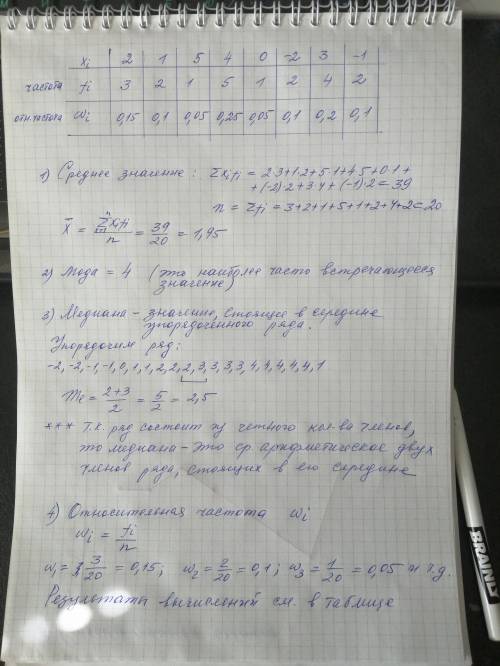 xi 2 1 5 4 0 -2 3 -1
частота fi 3 2 1 5 1 2 4 2
отн. частота wi 0,15 0,1 0,05 0,25 0,05 0,1 0,2 0,1
1) Среднее значение: Σxifi = 2·3+1·2+5·1+4·5+0·1+
+(-2)·2+3·4+(-1)·2=39
n = Σfi = 3+2+1+5+1+2+4+2=20
X̄ = Σxifi/n = 39/20 = 1,95
2) Мода = 4 (это наиболее часто встречающееся
значение)
3) Медиана - значение, стоящее в середине
упорядоченного ряда.
Упорядочим ряд:
-2,-2,-1,-1,0,1,1,2,2,2,3,3,3,3,4,4,4,4,4,1
Me = 2+3/2 = 5/2 = 2,5
*** Т.к. ряд состоит из четного кол-ва членов,
то медиана - это ср. арифметическое двух
членов ряда, стоящих в его середине
4) Относительная частота wi
wi = fi/n
w1 = 3/20 = 0,15; w2 = 2/20 = 0,1; w3 = 1/20 = 0,05 и т.д.
Результаты вычислений см. в таблице
BRAUBERG